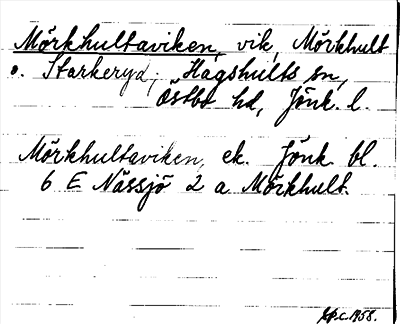 Mörkhultaviken, vik, Mörkhult
o. Starkeryd, Hagshults sn,
Östbo hd, Jönk. l.
Mörkhultaviken, ek. Jönk. bl.
6 E Nässjö 2 a Mörkhult.
1958.